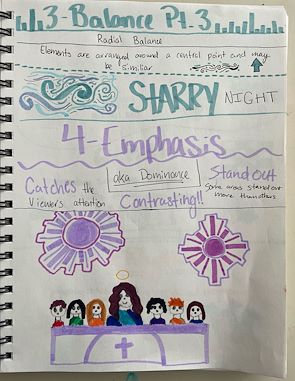 3-Balance Pt.3
Radial Balance
Elements are arranged around a central point and may
be similiar
STARRY NIGHT
4-Emphasis
Catches the
Viewer's attention
aka Dominance
Contrasting!!
Stand out
Some areas stand out
more than others